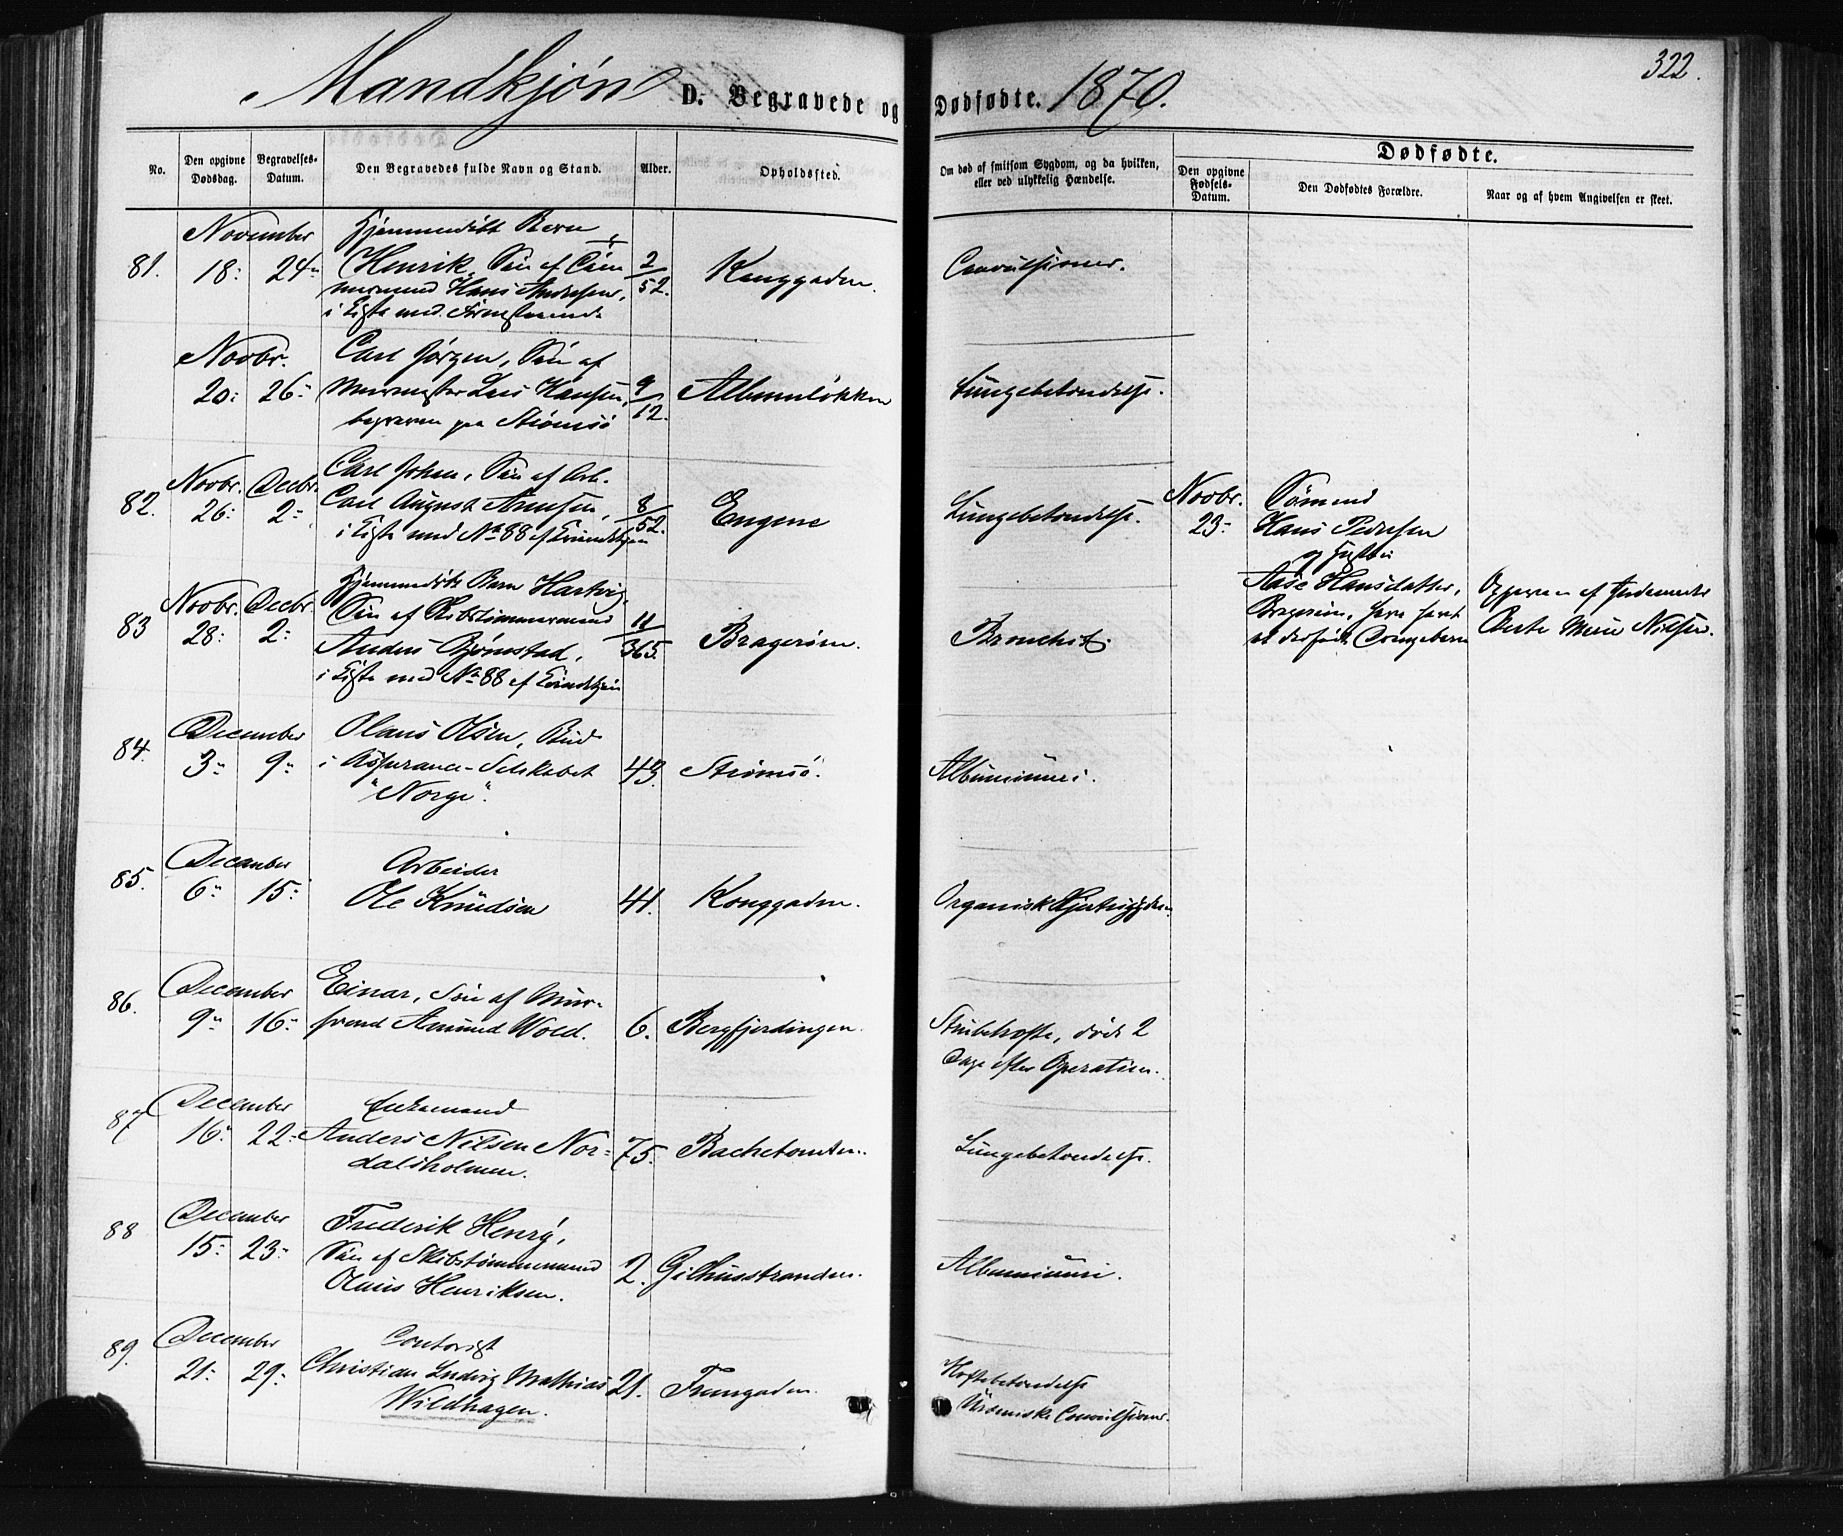 322.
Mandkjøn D. Begravede og Dødfødte. 1870.
No.
Den opgivne Dødsdag.
Begravelses-Datum.
Den Begravedes fulde Navn og Stand.
Alder.
Opholdssted.
Om død af smitsom Sygdom, og da hvilken,
eller ved ulykkelig Hændelse.
Dødfødte.
Den opgivne Fødsels-Datum.
Den Dødfødtes Forældre.
Naar og af hvem Angivelsen er skeet.
November
81. 18: 24"
Hjemmedøbt Barn
Henrik, Søn af Töm
mermand Hans Andersen,
i Kiste med
2/52.
Konggaden.
Convulsioner.
Novbr.
20: 26"
Carl Jørgen, Søn af
Murmester Lars Hansen,
begraven paa Strömsö
9/12.
Albumløkken
Lungebetændelse.
82. Novbr. 26: Decbr. 2"
Carl Johan, Søn af Arb.
Carl August
i Kiste med No 88 af Kvindekjøn
8/52.
Engene
Lungebetændelse.
Novbr.
23"
Sømand
Hans Pedersen
og Hustru
Aase Hansdatter,
Bragernes,
et dødfødt Drengebarn
Opgiven af Jordemoder
Berte Marie Nilsen.
83 Novbr. 28: Decbr. 2"
Hjemmedøbt Barn Hartvig,
Søn af Skibstømmermand
Anders Bjørnstad,
i Kiste med No 88 af Kvindekjøn
11/365.
Bragerøen.
Bronchit.
December
84. 3" 9"
Olaus Olsen, Bud
i Assurance-Selskabet
"Norge".
43.
Strömsö.
Albuminuri.
December
85. 6" 15"
Arbeider
Ole Knudsen
41.
Konggaden.
Organisk Hjertesygdom
December
86. 9" 16"
Einar, Søn af Mur-
svend Amund Wold.
6.
Bergfjerdingen.
Strubehoste, død 2
Dage efter Operation.
December
87 16" 22"
Enkemand
Anders Nilsen Nor-
dalsholmen.
75.
Bachetomten.
Lungebetændelse.
December
88 15" 23"
Frederik Henry,
Søn af Skibstømmermand
Olaus Henriksen.
2.
Gilhusstranden.
Albuminuri.
December
89. 21" 29"
Contorist
Christian Ludvig Mathias
Wildhagen.
21.
Tremgaden.
Hoftebetændelse
Uræmiske Convulsioner.